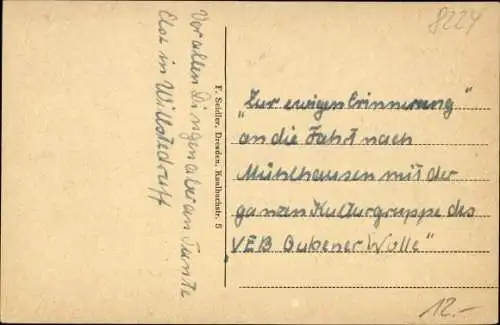 8224
Vor allen Dingen aber an Tante
Else in Willstedruff
F. Seidler, Dresden, Kaulbachstr. 5
"Zur ewigen Erinnerung"
an die Fahrt nach
Mühlhausen mit der
ganzen Kulturgruppe des
"VEB Gubener Wolle"
12.-